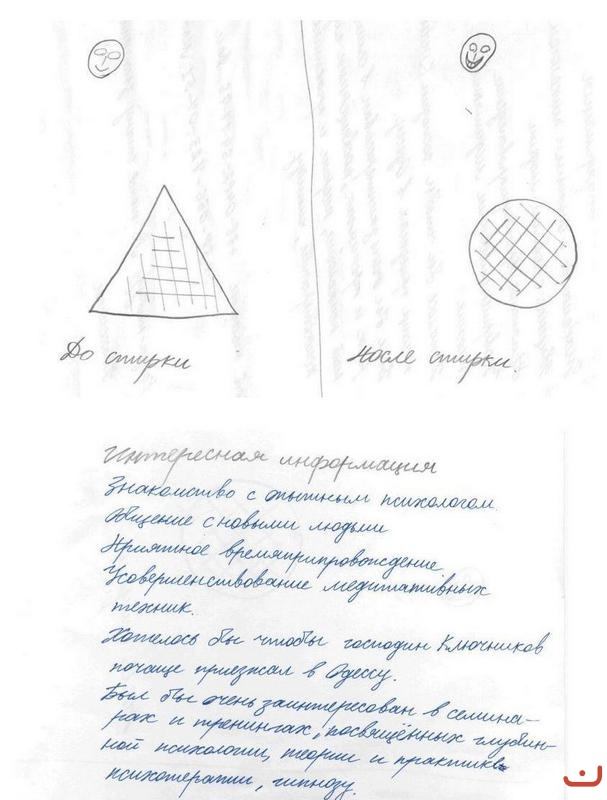 До стирки
После стирки.
Интересная информация
Знакомство с опытным психологом.
Общение с новыми людьми
Приятное времяприпровождение
Усовершенствование медитативных
техник.
Хотелось бы чтобы господин Ключников
почаще приезжал в Одессу.
Был бы очень заинтересован в семина-
рах и тренингах, посвящённых глубин-
ной психологии, теории и практике
психотерапии, гипнозу.